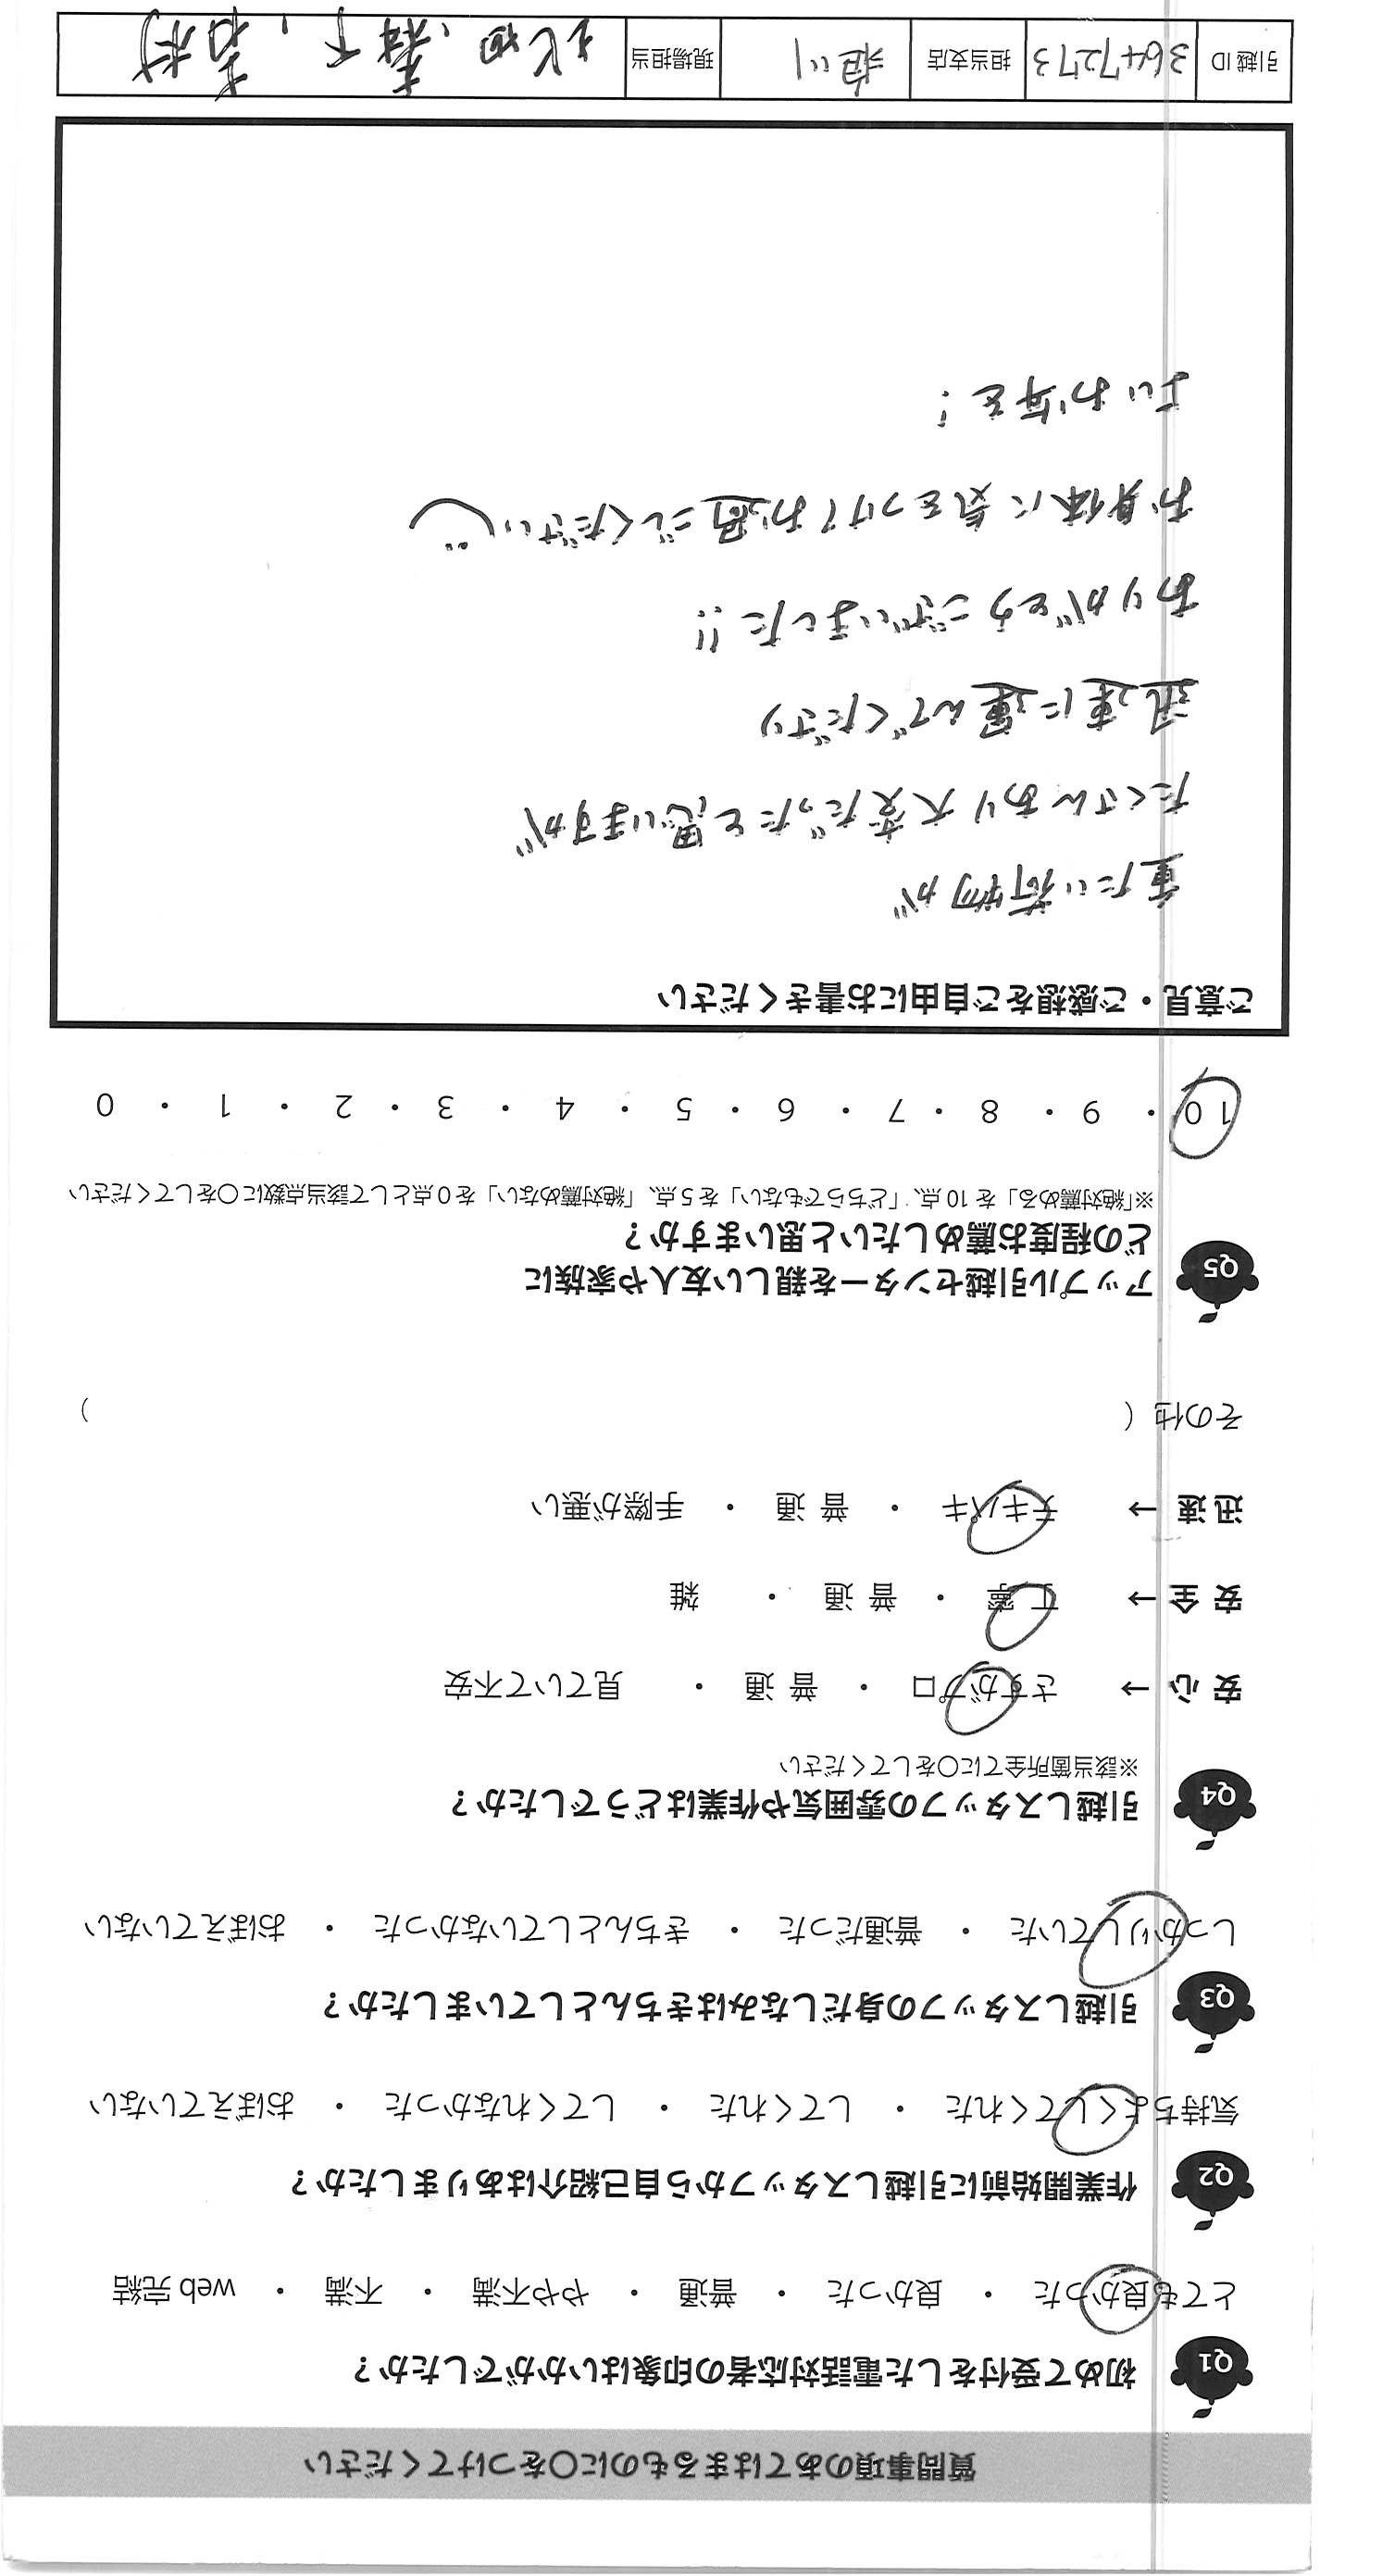 質問事項のあてはまるものに○をつけてください
Q1 初めて受付をした電話対応者の印象はいかがでしたか？
とても良かった ・ 良かった ・ 普通 ・ やや不満 ・ 不満 ・ web 完結
Q2 作業開始前に引越しスタッフから自己紹介はありましたか？
気持ちよくしてくれた ・ してくれた ・ してくれなかった ・ おぼえていない
Q3 引越しスタッフの身だしなみはきちんとしていましたか？
しっかりしていた ・ 普通だった ・ きちんとしていなかった ・ おぼえていない
Q4 引越しスタッフの雰囲気や作業はどうでしたか？
※該当箇所全てに○をしてください
安心→ さすがプロ ・ 普通 ・ 見ていて不安
安全→ 丁寧 ・ 普通 ・ 雑
迅速→ テキパキ ・ 普通 ・ 手際が悪い
その他（ ）
Q5 アップル引越センターを親しい友人や家族に
どの程度お薦めしたいと思いますか？
※「絶対薦める」を 10 点、「どちらでもない」を 5 点、「絶対薦めない」を 0 点として該当点数に○をしてください
10 ・ 9 ・ 8 ・ 7 ・ 6 ・ 5 ・ 4 ・ 3 ・ 2 ・ 1 ・ 0
ご意見・ご感想をご自由にお書きください
重たい荷物が
たくさんあり大変だったと思いますが
迅速に運んでくださり
ありがとうございました!!
お身体に気をつけてお過ごしください
よいお年を！
引越 ID 3647273 担当支店 旭川 現場担当 北田、森下、若村